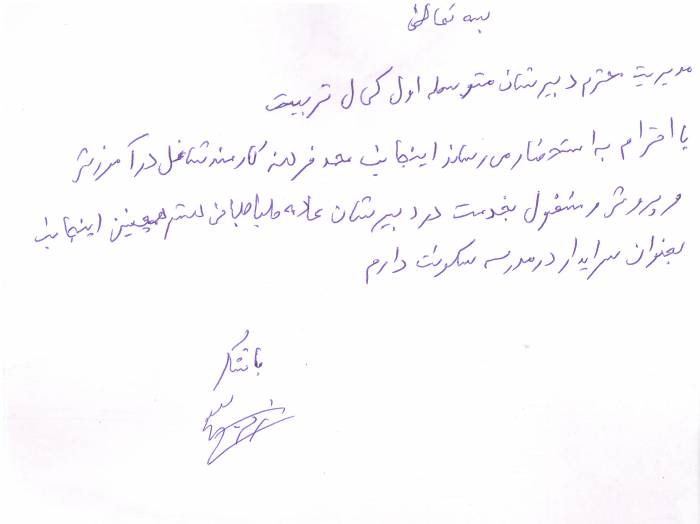 بسه تعالی
مدیریت محترم دبیرستان متوسطه اول کمال تربیت
با احترام به استحضار می رساند اینجانب محمد کارمند شاغل در آموزش
و پرورش و مشغول بخدمت در دبیرستان علامه طباطبائی هستم همچنین اینجانب
بعنوان سرایدار در مدرسه سکونت دارم
با تشکر